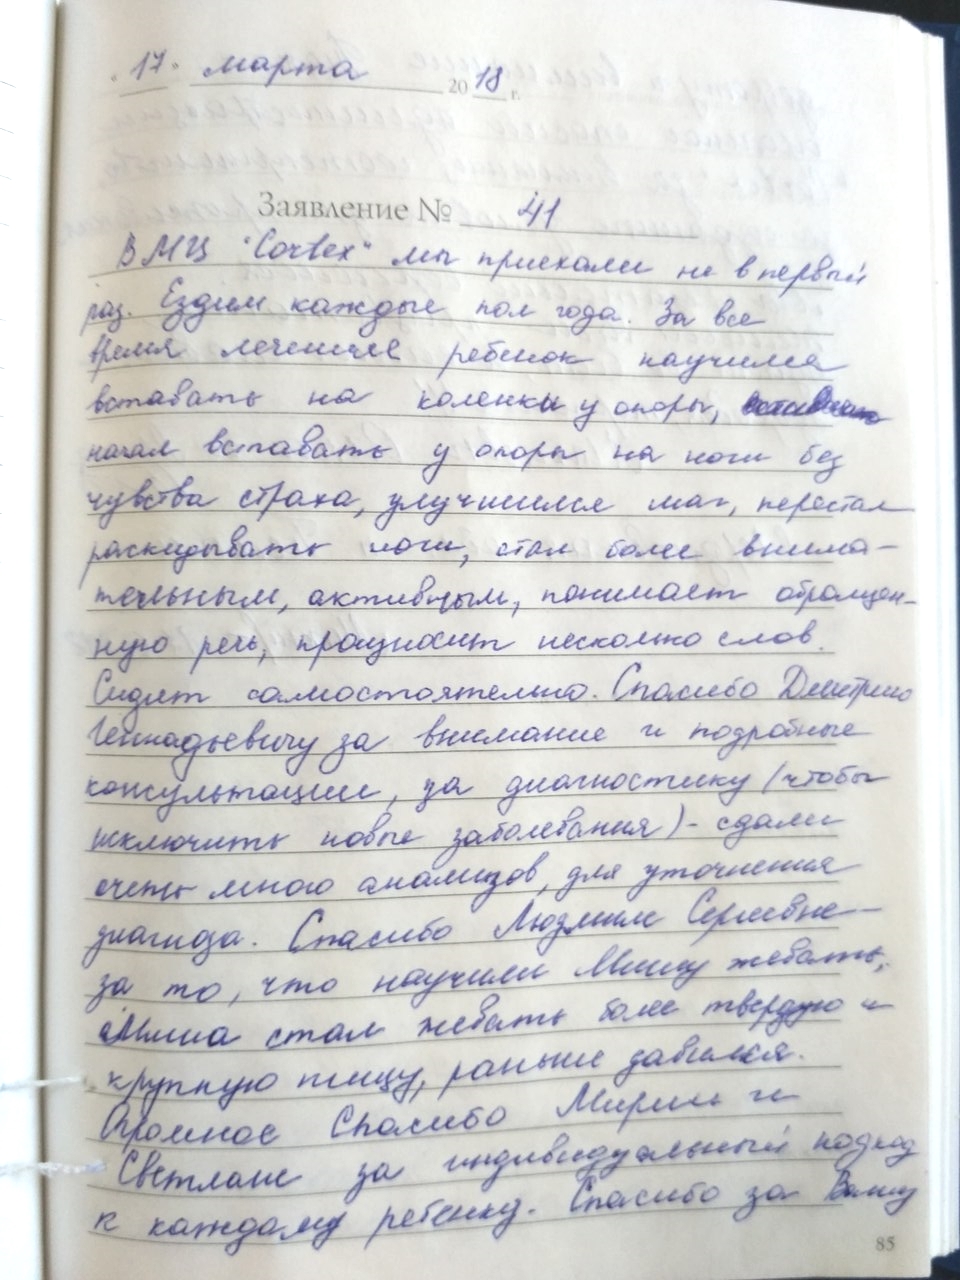 « 17 » марта 2018 г.
Заявление № 41
В МЦ "Cortex" мы приехали не в первый
раз. Ездим каждые пол года. За все
время лечения ребенок научился
вставать на коленки у опоры,
начал вставать у опоры на ноги без
чувства страха, улучшился шаг, перестал
раскидывать ноги, стал более внима-
тельным, активным, понимает обращен-
ную речь, произносит несколько слов.
Сидит самостоятельно. Спасибо Дмитрию
Геннадьевичу за внимание и подробные
консультации, за диагностику (чтобы
исключить новые заболевания) - сдали
очень много анализов, для уточнения
диагноза. Спасибо Людмиле Сергеевне
за то, что научили Мишу жевать,
Миша стал жевать более твердую и
крупную пищу, раньше давился.
Огромное Спасибо Марии и
Светлане за индивидуальный подход
к каждому ребенку. Спасибо за Вашу
85